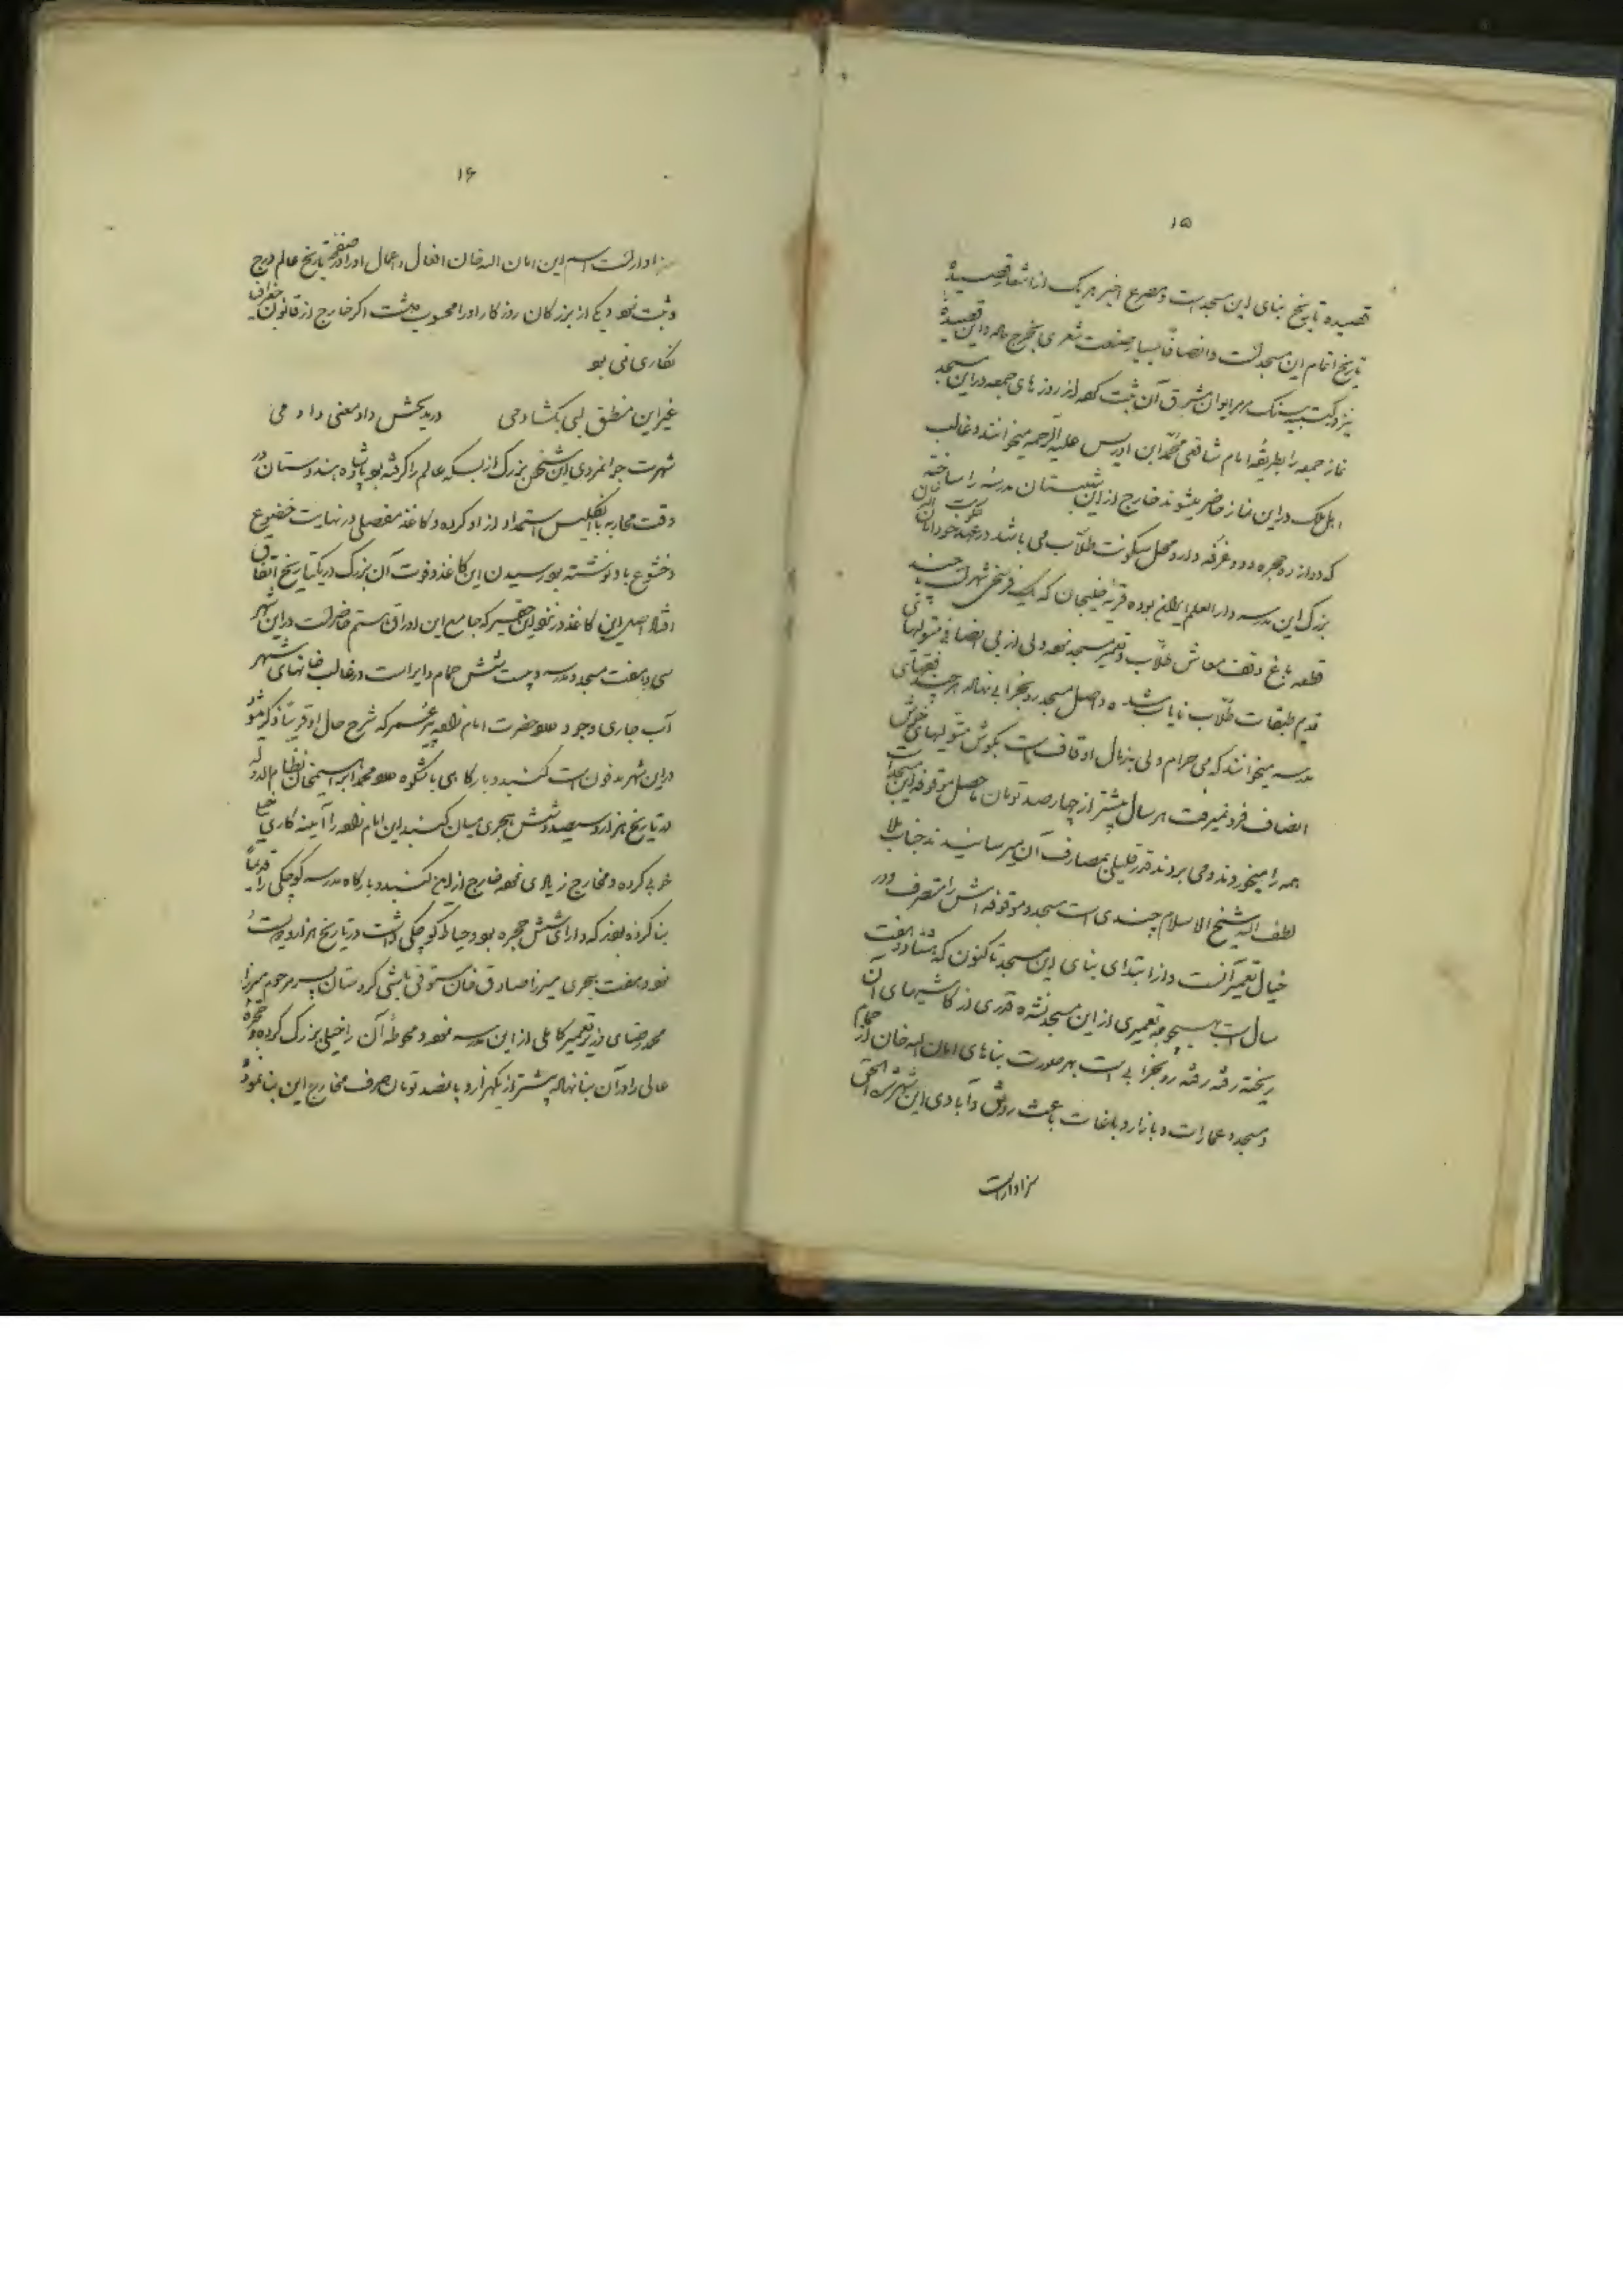 ۱۵
قصیده تاریخ بنای این مسجد است و مصرع اخیر هر یک از اشعار قصیدهٔ
تاریخ اتمام این مسجد است و انصافاً بسیار صنعت شعری بخرج داده و این قصیدهٔ
نیز در کتیبه سنگ مرمر ایوان مشرق آن ثبت کرده از روزهای جمعه در این مسجد
نماز جمعه را بطریقهٔ امام شافعی محمّد ابن ادریس علیه الرحمه میخوانند و غالب
اهل ملک در این نماز حاضر میشوند خارج از این شبستان مدرسهٔ را ساخته
که دوازده حجره و دو غرفه دارد و محل سکونت طلّاب می باشد در عهد حکومت خود امان الله خان
بزرگ این مدرسه دارالعلم ایران بوده قریهٔ خلیجان که یک فرسخی شهر است با چند
قطعه باغ وقف معاش طلّاب و تعمیر مسجد نموده ولی از بی انصافی متولیهای
قدیم طبقات طلّاب نایاب شده و اصل مسجد رو بخرابی نهاده هر چند فقهای
مدرسه میخوانند که می حرام ولی به ز مال اوقاف است بگوش متولیهای خوش
انصاف فرو نمیرفت هر سال بیشتر از چهارصد تومان حاصل موقوفه این مسجد است
همه را میخوردند و می بردند قدر قلیلی بمصارف آن میرسانیدند جناب ملا
لطف الله شیخ الاسلام چندی است مسجد و موقوفه اش را متصرف و در
خیال تعمیر آنست و از ابتدای بنای این مسجد تاکنون که هشتاد و هفت
سال است بهیچوجه تعمیری از این مسجد نشده قدری از کاشیهای آن
ریخته رفته رفته رو بخرابی است بهر صورت بناهای امان الله خان از حمام
و مسجد و عمارات و بازار و باغات باعث رونق و آبادی این شهر شده الحق
سزاوار است
۱۶
سزاوار است اسم این امان الله خان افعال و اعمال او را در صفحهٔ تاریخ عالم درج
و ثبت نمود و یکی از بزرگان روزگار او را محسوب داشت اگر خارج از قانون جغرافی
نگاری نمی بود
غیر این منطق لبی بگشادمی در مدیحش داد معنی دادمی
شهرت جوانمردی این شخص بزرگ از بسکه عالم را گرفته بود پادشاه هندوستان در
وقت محاربه با انگلیس استمداد از او کرده و کاغذ مفصلی در نهایت خضوع
و خشوع باو نوشته بود رسیدن این کاغذ و فوت آن بزرگ در یکتاریخ اتفاق
افتاد اصل این کاغذ در نزد این حقیر که جامع این اوراق هستم حاضر است در این شهر
سی و هفت مسجد و مدرسه و بیست و شش حمام دایر است در غالب خانهای شهر
آب جاری وجود دارد حضرت امام زاده پیر عمر که شرح حال او قریباً ذکر میشود
در این شهر مدفون است گنبد و بارگاهی باشکوه دارد محمد ابراهیمخان نظام الدوله
در تاریخ هزار و سیصد و شش هجری میان گنبد این امام زاده را آیینه کاری خیلی
خوبی کرده و مخارج زیادی نموده خارج از این گنبد و بارگاه مدرسه کوچکی را قدیماً
بنا کرده بودند که دارای شش حجره بود و حیاط کوچکی داشت در تاریخ هزار و دویست و
نود و هفت هجری میرزا صادق خان مستوفی باشی کردستان پسر مرحوم میرزا
محمد رضای وزیر تعمیر کاملی از این مدرسه نموده و محوطهٔ آن را خیلی بزرگ کرده و حجرهٔ
عالی را در آن بنا نهاده بیشتر از یکهزار و پانصد تومان صرف مخارج این بنا نمود